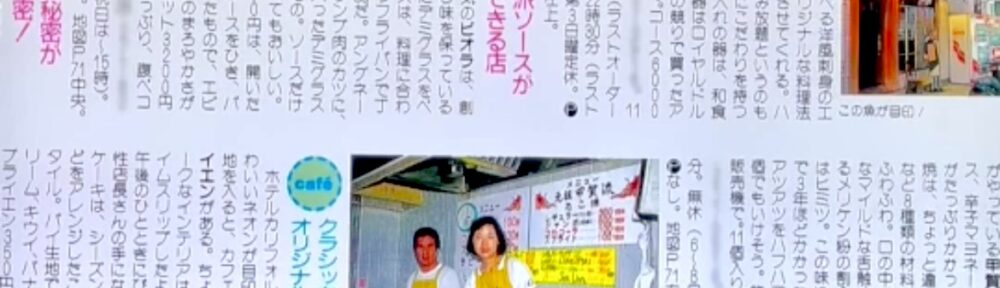 べる洋風刺身のエ
リジナルな料理法
させてくれる。ハ
み放題というのも
にこだわりを持つ
入れの器は、和食
器はロイヤルドル
の競りで買ったア
。コース6000
11
(ラストオーダー
22時30分(ラスト
第3日曜定休。
上。
派ソースが
できる店
気のビオラは、創
の味を保っている。
たデミグラスをベ
スは、料理に合わ
フライパンで丁
めた。アンゲネー
ンプ肉のカツに、
ったデミグラス
の。ソースだけ
てもおいしい。
0円は、開いた
ースをひき、パ
ット320円
のまろやかさが
たもので、エビ
っぷり、腹ペコ
秘密が
密!
日は〜15時)。
地図P.71中央。
この魚が目印!
がやっている甲賀
ス、辛子マヨネー
がたっぷりかかっ
焼は、ちょっと違
な8種類の材料
ふわふわ。口の中
なマイルドな舌触
るメリケン粉の割
はヒミツ。この味
で3年ほどかかっ
アツアツをハフハフ
個でもいけそう。
販売機で。1個入り
P なし。地図P.71
分。無休(6〜8
元祖甲賀流
メニュー
café
クラシッ
オリジナ
ホテルカリフォル
わいいネオンが目印
地を入ると、カフェ
イエンがある。ちょ
ークなインテリアは
イムスリップしたよ
午後のひとときに
性店長さんの手にな
ケーキは、シーズン
どをアレンジしたこ
タイル。パイ生地で
リーム、キウイ、バナ
ブライエン350円